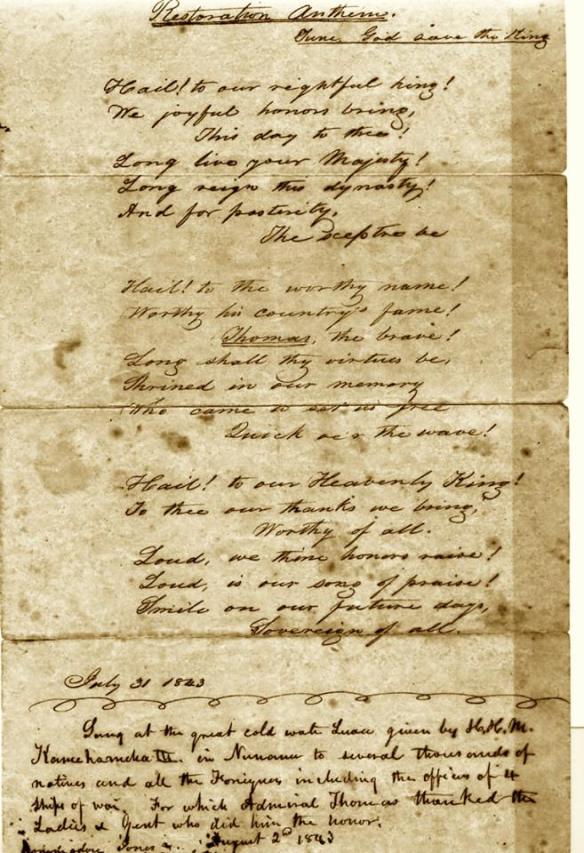 Restoration Anthem.
Tune, God save the King
Hail! to our rightful king!
We joyful honors bring,
This day to thee!
Long live your Majesty!
Long reign this dynasty!
And for posterity,
The sceptre be
Hail! to the worthy name!
Worthy his country's fame!
Thomas, the brave!
Long shall thy virtues be,
Shrined in our memory
Who came to set us free
Quick oe'r the wave!
Hail! to our Heavenly King!
To thee our thanks we bring,
Worthy of all.
Loud, we thine honors raise!
Loud, is our song of praise!
Smile on our future days,
Sovereign of all.
July 31 1843
Sung at the great cold water Luau given by H.H.M.
Kamehameha III. in Nuuanu to several thousands of
natives and all the Foreigners including the officers of 4
Ships of war. For which Admiral Thomas thanked the
Ladies & Gent who did him the honor.
Jones August 2d 1843